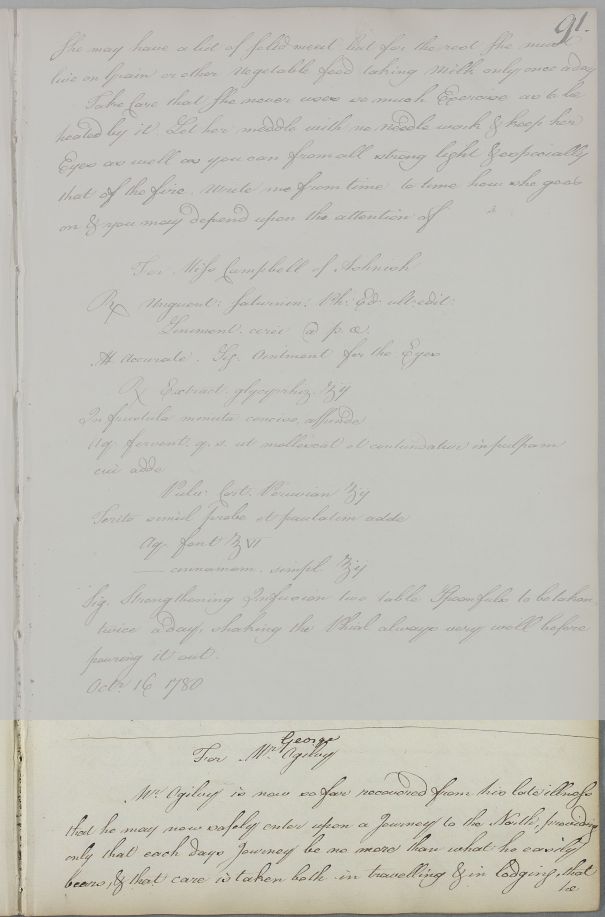 91.
She may have a bit of solid meat but for the rest She must
live on Grain or other Vegetable food taking Milk only once a day
Take Care that She never uses so much Exercise as to be
heated by it. Let her meddle with no needle work & keep her
Eyes as well as you can from all strong light & especially
that of the fire. Write me from time to time how she goes
on & you may depend upon the attention of
For Miss Campbell of
Rx Unguent: Saturnin: Ph: Ed: ult: edit:
Liniment. cerei a p. æ.
M Accurate. Sig. Ointment for the Eyes
Rx Extract. glycyrrhiz. ʒij
In frustula minuta conciso, affunde
Aq. fervent. q. s. ut mollescat et contundatur in pulpam
cui adde
Pulv. Cort. Peruvian ʒij
Terito simul probe et paulatim adde
Aq. font ℥VI
— cinnamom. simpl ℥ij
Sig. Strengthening Infusion two table Spoonfuls to be taken
twice a day, shaking the Phial always very well before
pouring it out.
Octr. 16 1780
George
For Mr. Ogilvy
Mr. Ogilvy is now so far recovered from his late illness
that he may now safely enter upon a Journey to the North, providing
only that each days Journey be no more than what he easily
bears, & that care is taken both in travelling & in lodging, that
he